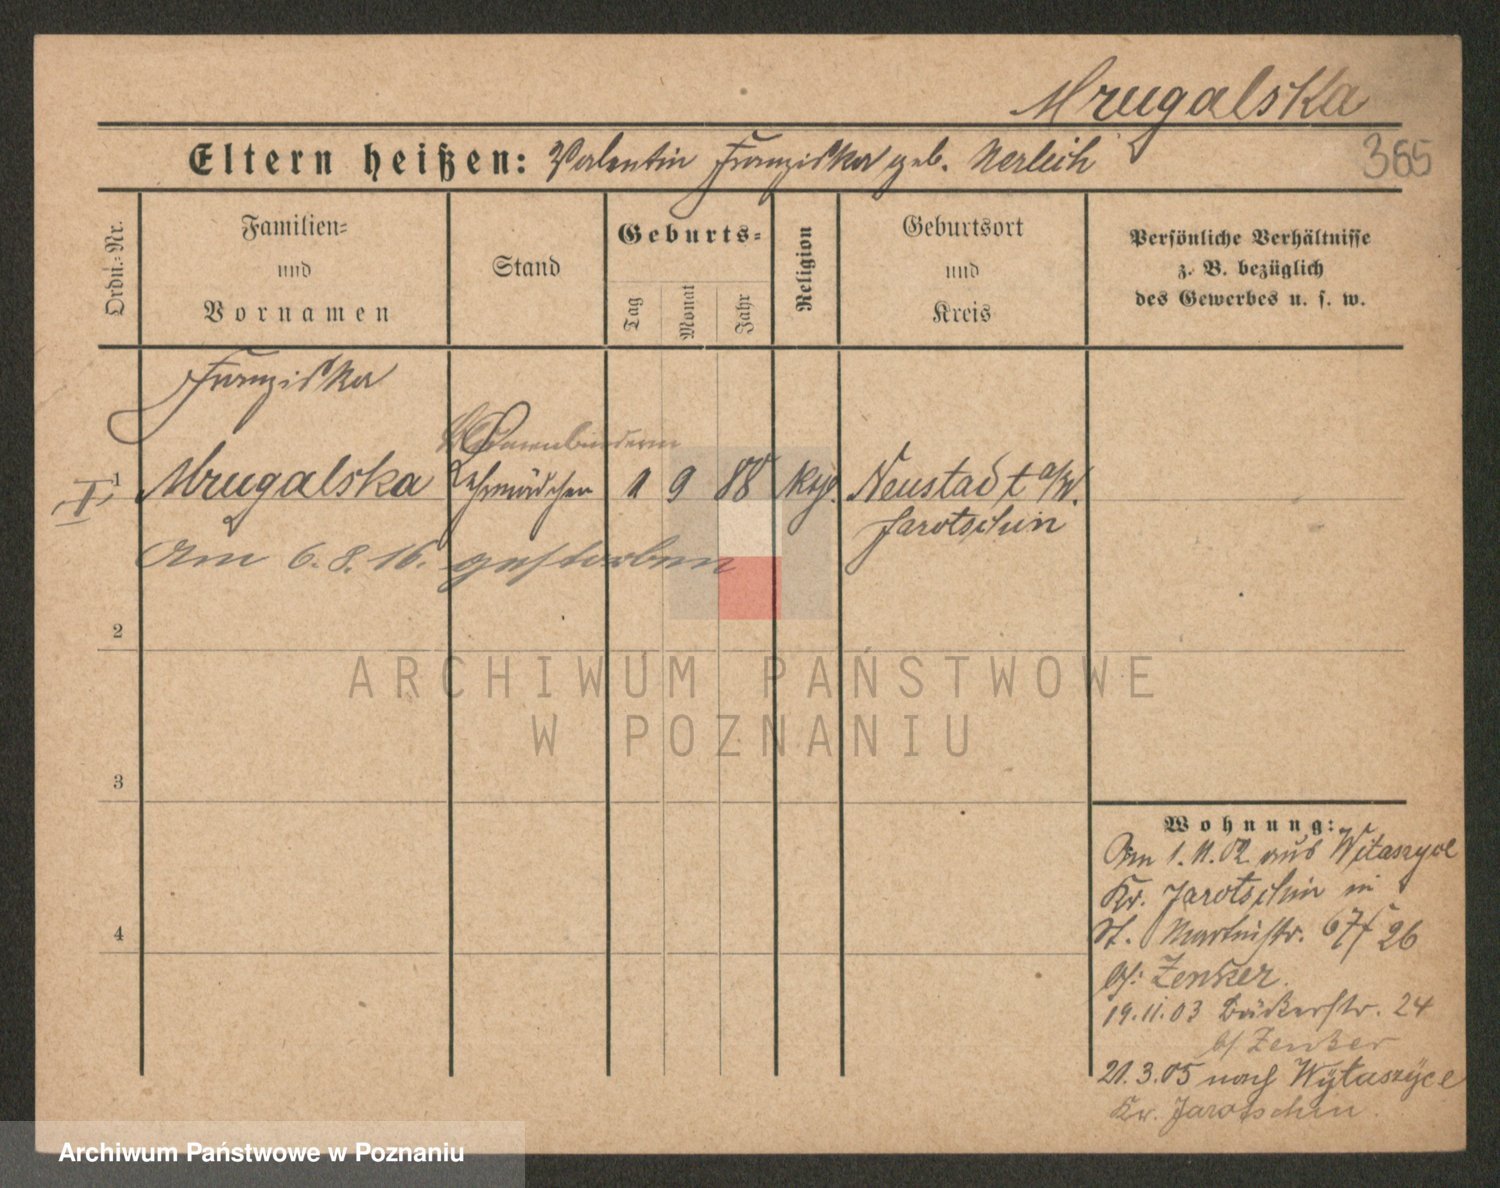 Mrugalska
365
Eltern heißen: Valentin Franziska geb. Nerlich
Ordn.-Nr.
Familien-
und
Vornamen
Stand
Geburts-
Tag
Monat
Jahr
Religion
Geburtsort
und
Kreis
Persönliche Verhältnisse
z. B. bezüglich
des Gewerbes u. s. w.
Franziska
Blumenbinderin
I 1 Mrugalska Lehrmädchen 1 9 88 Neustadt a/W.
Jarotschin
Am 6. 8. 16. gestorben
2
3
4
Wohnung:
Am 1. 11. 02 aus Witaszyce
Kr. Jarotschin in
St. Martinstr. 26
bei Zenker.
19. 11. 03 Bäckerstr. 24
b/ Zenker
21. 3. 05 nach Wÿtaszÿce
Kr. Jarotschin.
ARCHIWUM PAŃSTWOWE
W POZNANIU
Archiwum Państwowe w Poznaniu